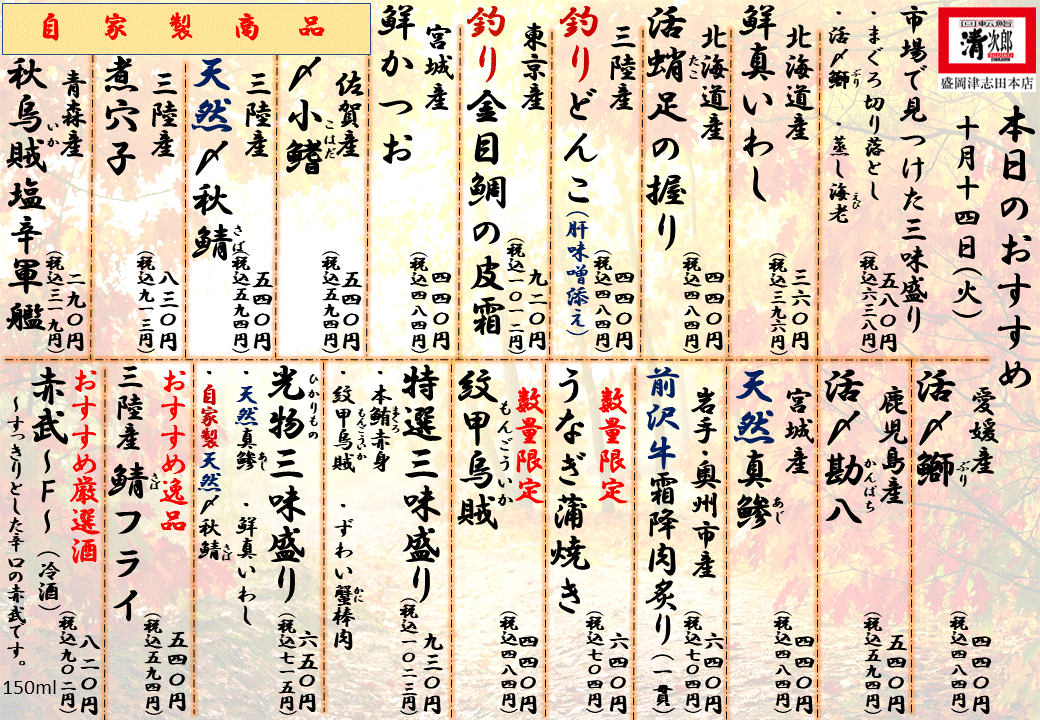 回転鮨
清次郎
盛岡津志田本店
本日のおすすめ
十月十四日(火)
市場で見つけた三味盛り
・まぐろ切り落とし
・活〆鰤 ・蒸し海老
ぶり
えび
五八〇円
(税込六三八円)
北海道産
鮮真いわし
三六〇円
(税込三九六円)
北海道産
活蛸足の握り
たこ
四四〇円
(税込四八四円)
三陸産
釣りどんこ(肝味噌添え)
四四〇円
(税込四八四円)
東京産
釣り金目鯛の皮霜
九二〇円
(税込一〇一二円)
宮城産
鮮かつお
四四〇円
(税込四八四円)
自家製商品
佐賀産
〆小鰭
こはだ
五四〇円
(税込五九四円)
三陸産
天然〆秋鯖
さば
五四〇円
(税込五九四円)
三陸産
煮穴子
八三〇円
(税込九一三円)
青森産
秋烏賊塩辛軍艦
いか
二九〇円
(税込三一九円)
愛媛産
活〆鰤
ぶり
四四〇円
(税込四八四円)
鹿児島産
活〆勘八
かんぱち
五四〇円
(税込五九四円)
宮城産
天然真鯵
あじ
四四〇円
(税込四八四円)
岩手・奥州市産
前沢牛霜降肉炙り(一貫)
六四〇円
(税込七〇四円)
数量限定
うなぎ蒲焼き
六四〇円
(税込七〇四円)
数量限定
紋甲烏賊
もんごういか
四四〇円
(税込四八四円)
特選三味盛り
・本鮪赤身
まぐろ
・紋甲烏賊 ・ずわい蟹棒肉
もんごういか
かに
九三〇円
(税込一〇二三円)
光物三味盛り
ひかりもの
・天然真鯵 ・鮮真いわし
あじ
・自家製天然〆秋鯖
さば
六五〇円
(税込七一五円)
おすすめ逸品
三陸産 鯖フライ
さば
五四〇円
(税込五九四円)
おすすめ厳選酒
赤武~F~(冷酒)
~すっきりとした辛口の赤武です。
八二〇円
(税込九〇二円)
150ml